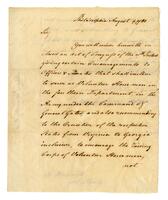 Philadelphia August 9 1780
Sir
You will receive herewith in
closed an Act of Congress of the
giving certain Encouragements to
Officers & that shall inlist
to serve as Volunteer Horsemen in
the Southern Department, in the
Army under the Command of
General Gates, and also recommending
to the Executives of the respective
States from Virginia to Georgia
inclusive, to encourage the raising
Corps of Volunteer Horsemen,
not